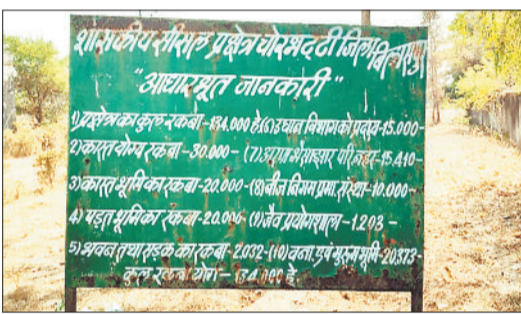 शासकीय सीसल प्रक्षेत्र चोरभट्टी जिला बिलासपुर
"आधारभूत जानकारी"
1) प्रक्षेत्र का कुल रकबा-134.000 हे. (6) उद्यान विभाग को प्रदत्त-15.000-
2) कास्त योग्य रकबा-30.000-(7) -15.410-
3) कास्त भूमि का रकबा-20.000-(8) बीज निगम प्रमा. संस्था-10.000-
4) पड़त भूमि का रकबा-20.006 (9) जैव प्रयोगशाला-1.203-
5) भवन तथा सड़क का रकबा-2.032-(10) भूमि-20.373-
कुल रकबा योग-134.000 हे.